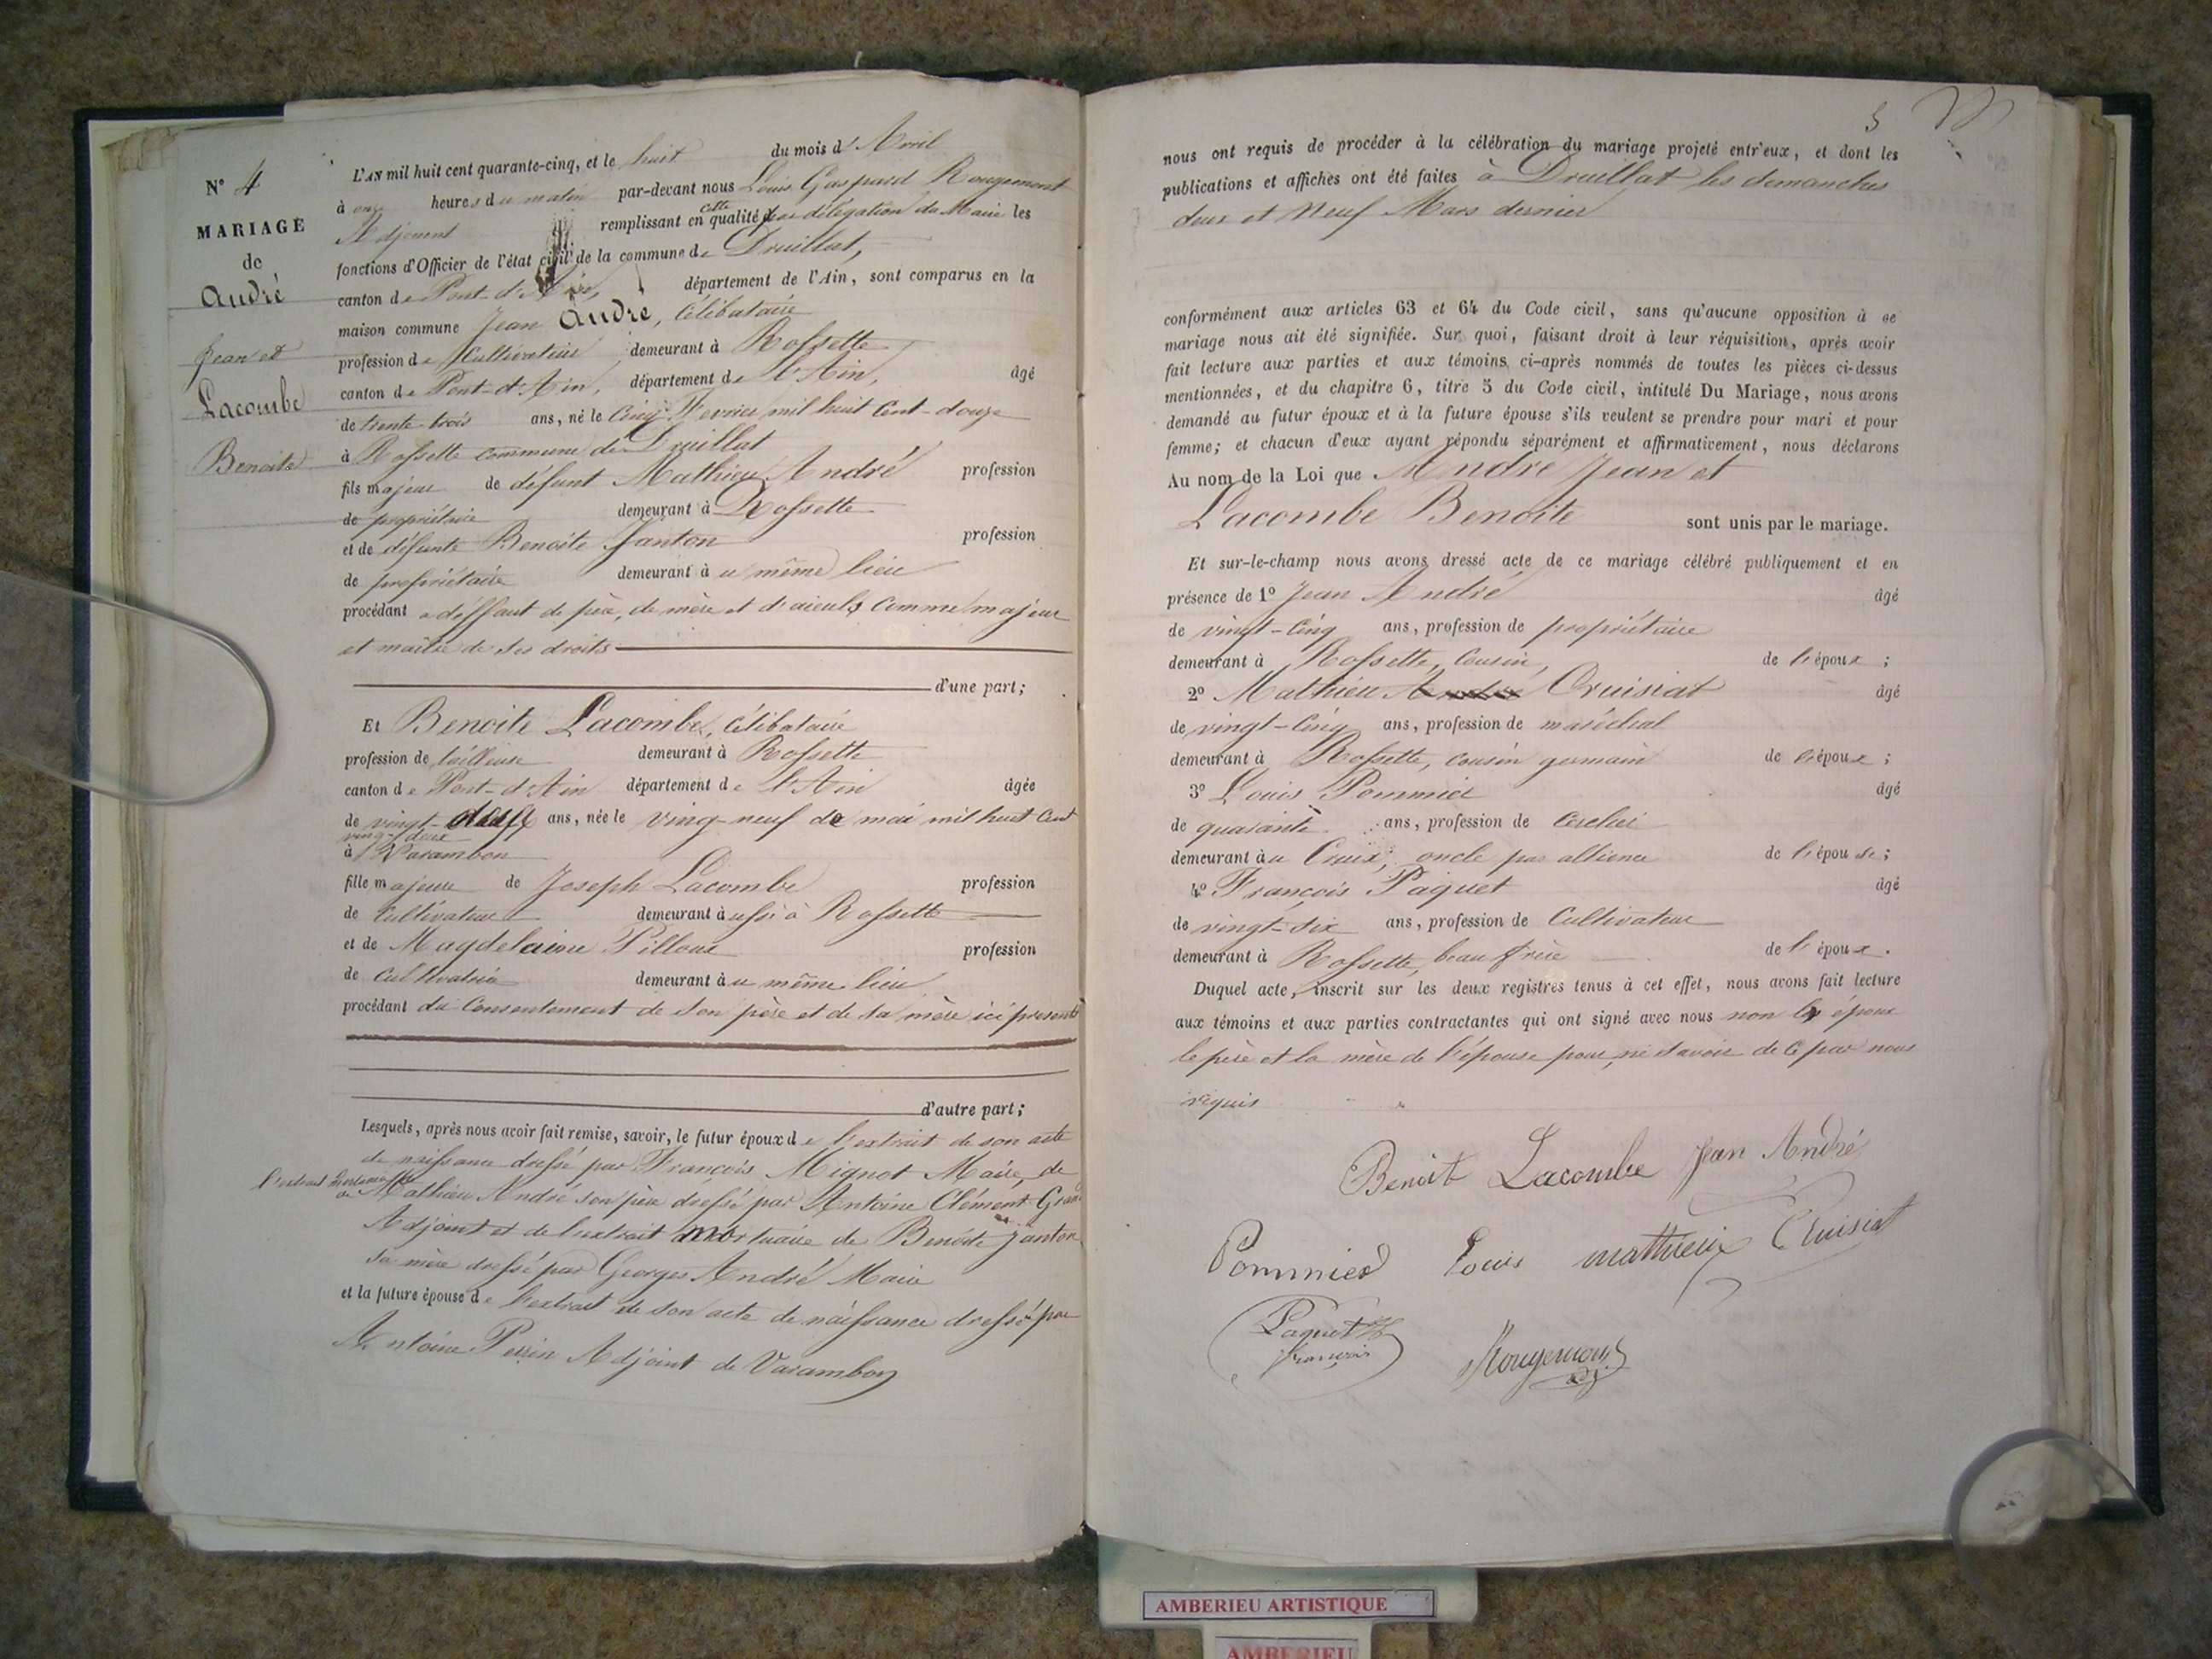 N° 4
MARIAGE
de
André
Jean et
Lacombe
Benoite
L'AN mil huit cent quarante-cinq, et le huit du mois d'Avril
à onze heures du matin par-devant nous Louis Gaspard Rougemont
Adjoint remplissant en cette qualité par délégation du Maire les
fonctions d'Officier de l'état civil de la commune de Druillat,
canton de Pont-d'Ain, département de l'Ain, sont comparus en la
maison commune Jean André, Célibataire
profession de Cultivateur demeurant à Rossette
canton de Pont-d'Ain, département de l'Ain, âgé
de trente trois ans, né le Cinq Fevrier mil huit Cent-douze
à Rossette commune de Druillat
fils majeur de défunt Mathieu André profession
de propriétaire demeurant à Rossette
et de défunte Benoite Janton profession
de propriétaire demeurant au même lieu
procédant a déffaut de père, de mère et d'aieuls comme majeur
et maître de ses droits
d'une part;
Et Benoite Lacombe, Célibataire
profession de tailleuse demeurant à Rossette
canton de Pont-d'Ain département de l'Ain âgée
de vingt-deux ans, née le ving-neuf de mai mil huit Cent
ving-deux
à Varambon
fille majeure de Joseph Lacombe profession
de Cultivateur demeurant aussi à Rossette
et de Magdelaine Pilloux profession
de Cultivatrice demeurant au même lieu
procédant du Consentement de son père et de sa mère ici présents
d'autre part;
Lesquels, après nous avoir fait remise, savoir, le futur époux de l'extrait de son acte
de naissance dressé par François Mignot Maire, de
l'extrait mortuaire de Mathieu André son père dressé par Antoine Clément Gran
Adjoint et de l'extrait mortuaire de Benoite Janton
sa mère dressé par Georges André Maire
et la future épouse de l'extrait de son acte de naissance dressé par
Antoine Perrin Adjoint de Varambon
5
nous ont requis de procéder à la célébration du mariage projeté entr'eux, et dont les
publications et affiches ont été faites à Druillat les dimanches
deux et Neuf Mars dernier
conformément aux articles 63 et 64 du Code civil, sans qu'aucune opposition à ce
mariage nous ait été signifiée. Sur quoi, faisant droit à leur réquisition, après avoir
fait lecture aux parties et aux témoins ci-après nommés de toutes les pièces ci-dessus
mentionnées, et du chapitre 6, titre 5 du Code civil, intitulé Du Mariage, nous avons
demandé au futur époux et à la future épouse s'ils veulent se prendre pour mari et pour
femme; et chacun d'eux ayant répondu séparément et affirmativement, nous déclarons
Au nom de la Loi que André Jean et
Lacombe Benoite sont unis par le mariage.
Et sur-le-champ nous avons dressé acte de ce mariage célébré publiquement et en
présence de 1° Jean André âgé
de vingt-Cinq ans, profession de propriétaire
demeurant à Rossette, Cousin, de l'époux;
2° Mathieu Cruisiat âgé
de vingt-Cinq ans, profession de maréchal
demeurant à Rossette, cousin germain de l'époux;
3° Louis Pommier âgé
de quarante ans, profession de
demeurant au Craix, oncle par alliance de l'épouse;
4° François Paquet âgé
de vingt-six ans, profession de Cultivateur
demeurant à Rossette, beau frère de l'époux.
Duquel acte, inscrit sur les deux registres tenus à cet effet, nous avons fait lecture
aux témoins et aux parties contractantes qui ont signé avec nous non les époux
le père et la mère de l'épouse pour ne savoir de ce par nous
requis
Benoit Lacombe Jean André
Pommier Louis mathieu Cruisiat
Paquet
françois Rougemont
AMBERIEU ARTISTIQUE
AMBERIEU